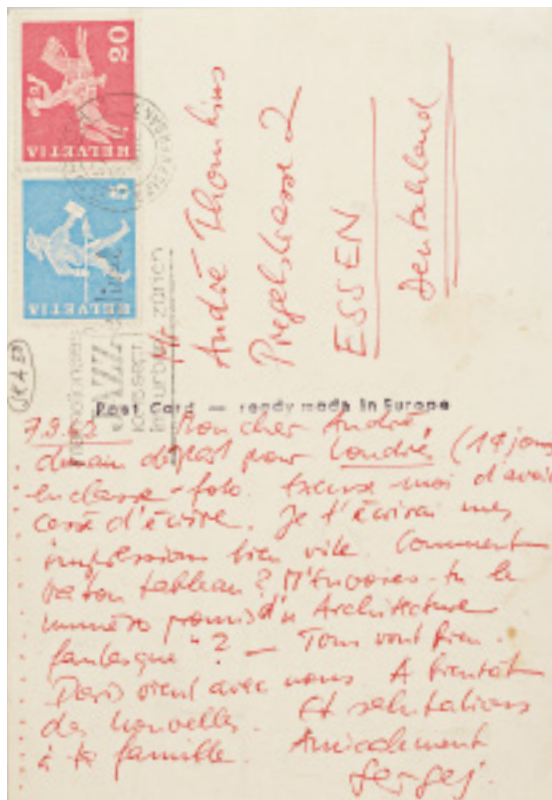 20
HELVETIA
5
HELVETIA
André Thomkins
Pregelstrasse 2
ESSEN
Deutschland
JAZZ
zürich
Post Card — ready made in Europe
7.9.62 Mon cher André,
demain départ pour Londres (14 jours
en classe-foto. Excuse moi d'avoir
cessé d'écrire. Je t'écrirai mes
impression bien vite. Comment
va ton tableau? M'envoies-tu le
numéro promis d'"Architecture
fantasque"? — Tous vont bien.
vient avec nous A bientôt
des nouvelles. Et salutations
à ta famille. Amicalement
Sergej.